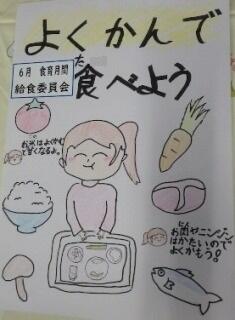 よくかんで
食べよう
た
6月 食育月間
給食委員会
お米はよくかむ
と甘くなるよ。
お肉やニンジン
にく
はかたいので
よくかもう!